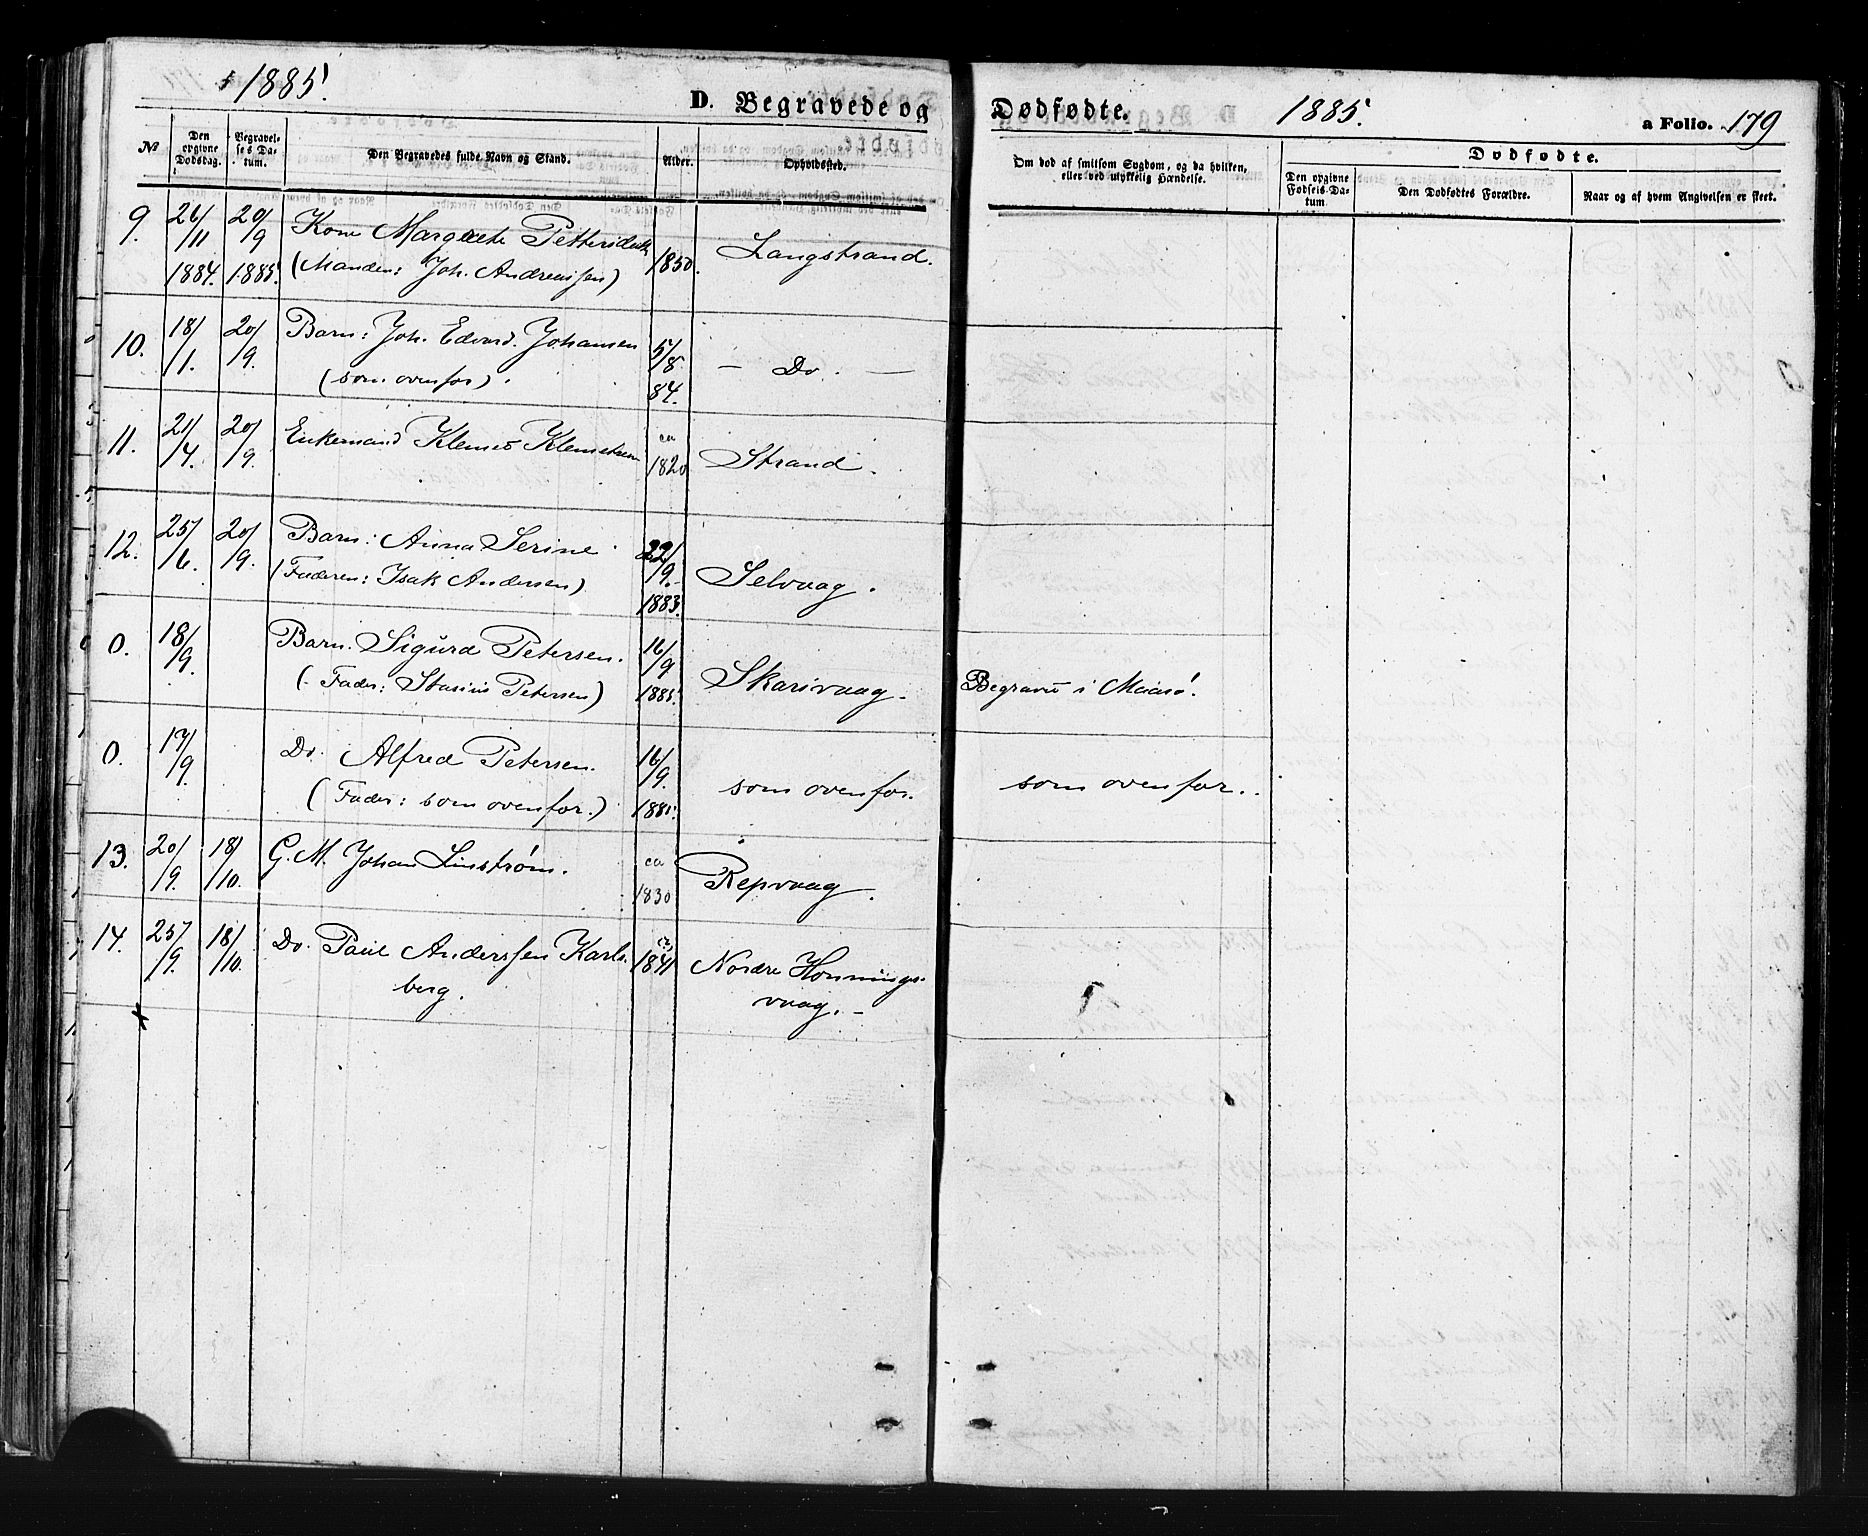 1885.
D. Begravede og
Dødfødte.
1885.
a Folio. 179
№
Den opgivne Dødsdag.
Begravelses Datum.
Den Begravedes fulde Navn og Stand.
Alder.
Opholdssted.
Om død af smitsom Sygdom, og da hvilken, eller ved ulykkelig Hændelse.
Dødfødte.
Den opgivne Fødsels-Datum
Den Dødfødtes Forældre.
Naar og af hvem Angivelsen er skeet.
9. 26/11 1884. 20/9 1885. Kone Margrete
(Manden: Joh. Andreassen) 1850. Langstrand.
10. 18/1. 20/9. Barn: Joh. Edvard. Johansen 5/8 84. — Do. —
(som ovenfor).
11. 21/4. 20/9. Enkemand Klemet Klemetsen ca 1820 Strand.
12. 25/6. 20/9. Barn: Anna Serine. 22/9. 1883. Selvaag.
(Faderen: Isak Andersen)
0. 18/9. Barn. Sigurd Petersen. 16/9 1885. Skarsvaag. Begravet i Maasø.
(Fader: Petersen)
0. 17/9. Do. Alfred Petersen. 16/9. 1885. som ovenfor. som ovenfor.
(Fader: som ovenfor.)
13. 20/9. 18/10. G. M. Johan Linstrøm. ca 1830 Repvaag.
14. 25/9. 18/10. Do. Paul Anderssen Karls- (?) 1841 Nordre Honnings-
berg. vaag. —